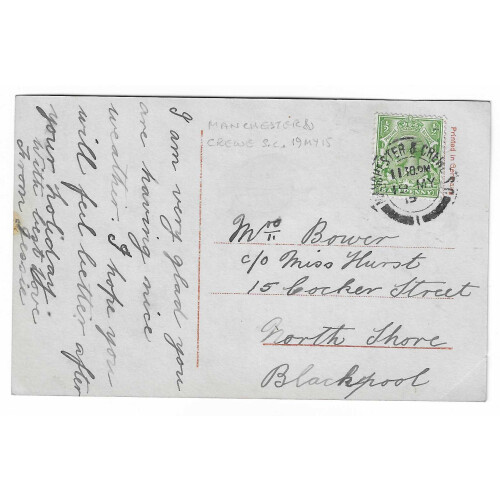 I am very glad you
are having nice
weather. I hope you
will ful better after
your holiday.
with best love
from Jessie
MANCHESTER &
CREWE S.C. 19MY15
Printed in
MANCHESTER & CREWE S.C.
11 30 PM
MY
15
1
Mrs Bower
c/o Miss Hurst
15 Cocker Street
North Shore
Blackpool